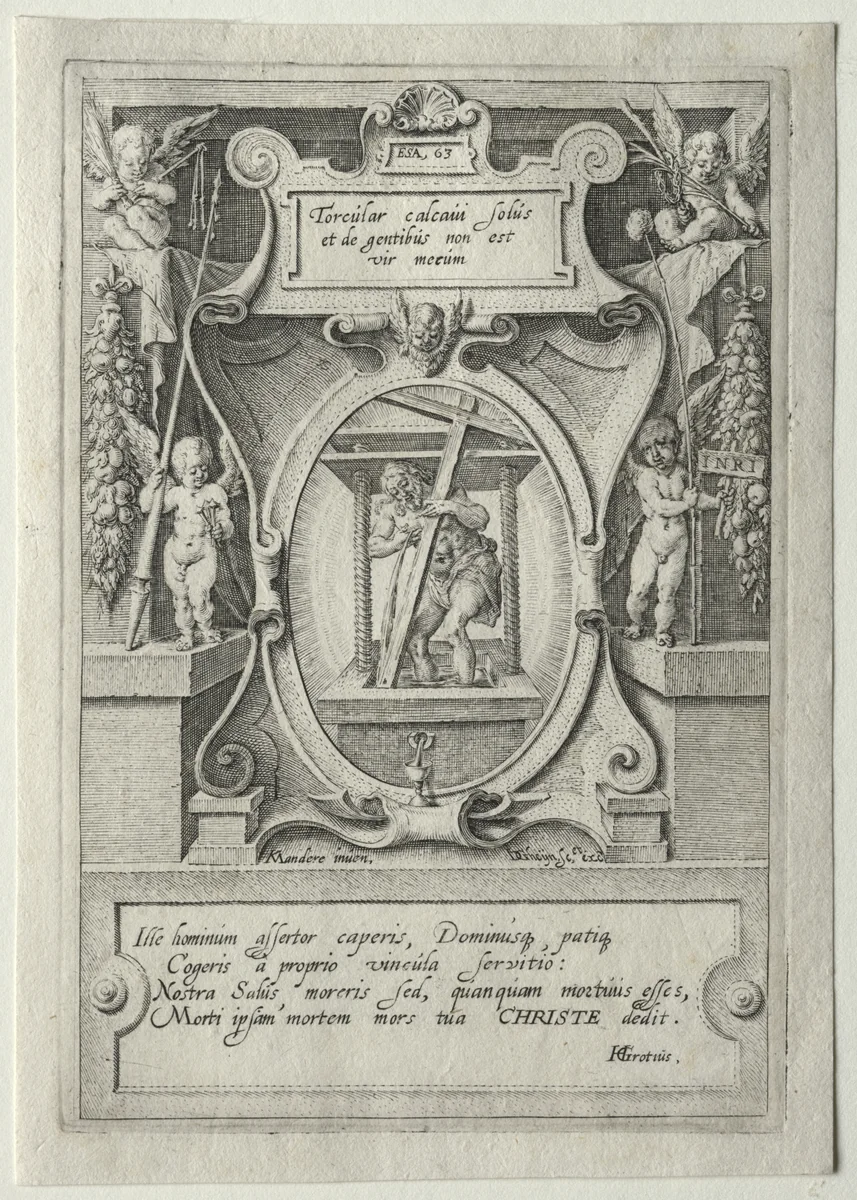 ESA, 63
Torcular calcaui solus
et de gentibus non est
vir mecum
INRI
Mandere inuen.
DGheijn.sc. et exc
Ille hominum assertor caperis, Dominusq, patiq
Cogeris à proprio vincula servitio:
Nostra Salus, moreris sed, quanquam mortuus esses,
Morti ipsam mortem mors tua CHRISTE dedit.
HGrotius.